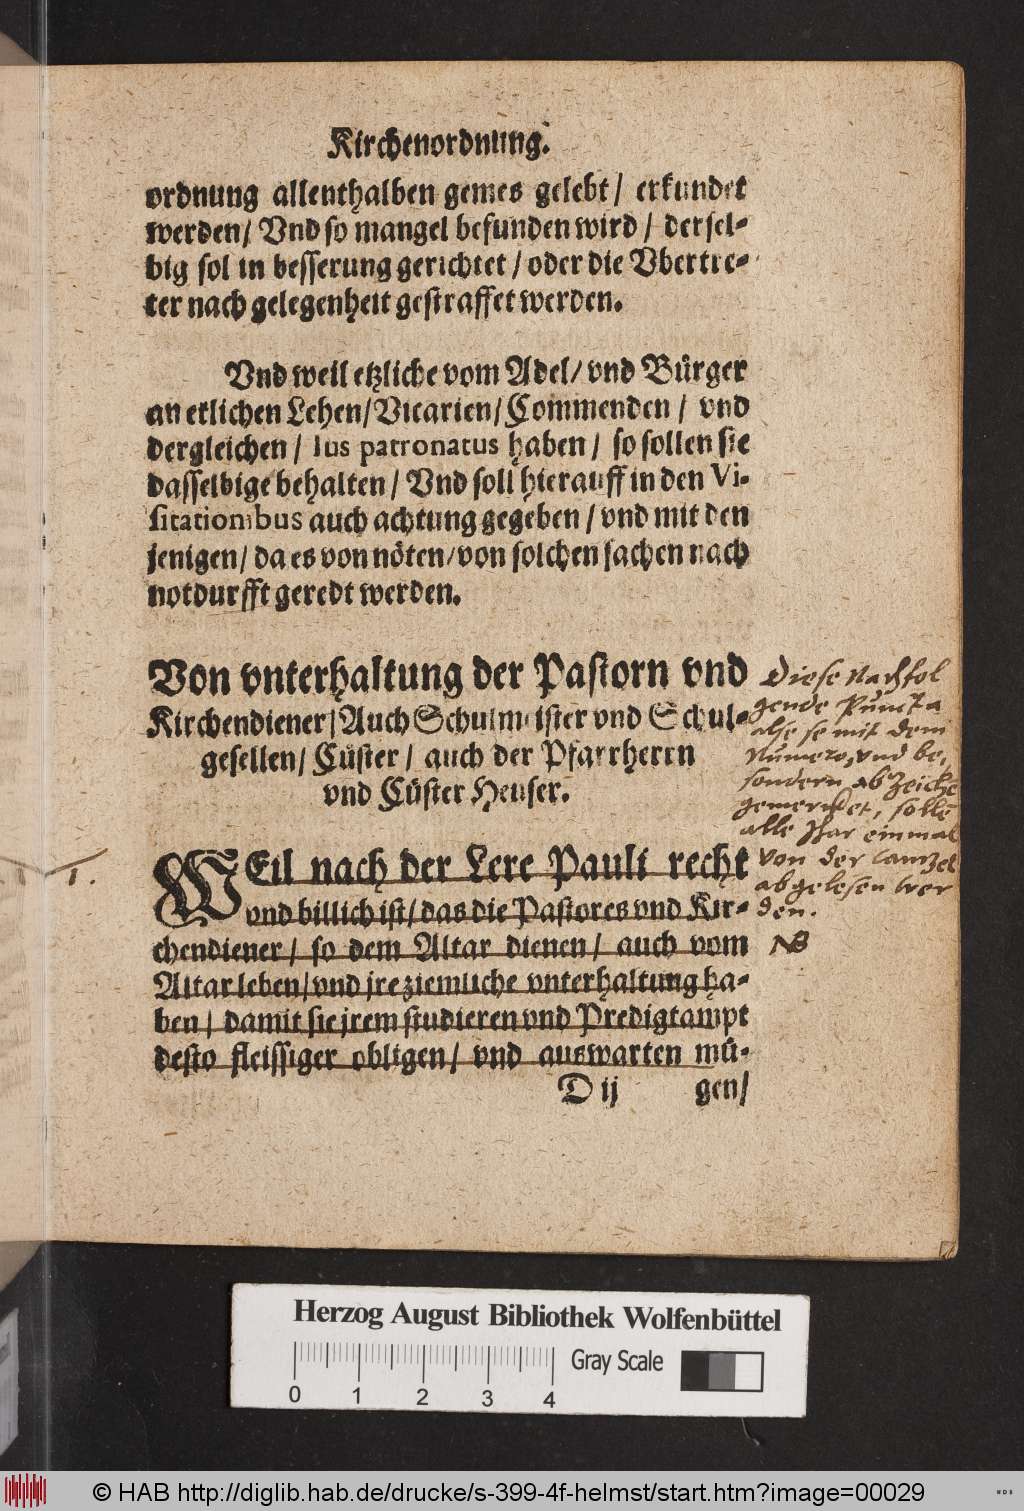 Kirchenordnung.
ordnung allenthalben gemes gelebt / erkundet
werden / Vnd so mangel befunden wird / dersel-
big sol in besserung gerichtet / oder die Vbertre-
ter nach gelegenheit gestraffet werden.
Vnd weil etzliche vom Adel / vnd Bürger
an etlichen Lehen / Vicarien / Commenden / vnd
dergleichen / Ius patronatus haben / so sollen sie
dasselbige behalten / Vnd soll hierauff in den Vi-
sitationibus auch achtung gegeben / vnd mit den
jenigen / da es von nöten / von solchen sachen nach
notdurfft geredt werden.
Von vnterhaltung der Pastorn vnd
Kirchendiener / Auch Schulmeister vnd Schul-
gesellen / Cüster / auch der Pfarrherrn
vnd Cüster Heuser.
Diese nachfol
gende Puncta
alse se mit dem
Numero, vnd be,
sondern abzeichē
gemercket, sollē
alle Jhar einmal
von der Cantzel
abgelesen wer
den.
NB
1.
WEil nach der Lere Pauli recht
vnd billich ist / das die Pastores vnd Kir-
chendiener / so dem Altar dienen / auch vom
Altar leben / vnd jre ziemliche vnterhaltung ha-
ben / damit sie jrem studieren vnd Predigtampt
desto fleissiger obligen / vnd auswarten mü-
D ij gen /
Herzog August Bibliothek Wolfenbüttel
Gray Scale
0 1 2 3 4
© HAB http://diglib.hab.de/drucke/s-399-4f-helmst/start.htm?image=00029